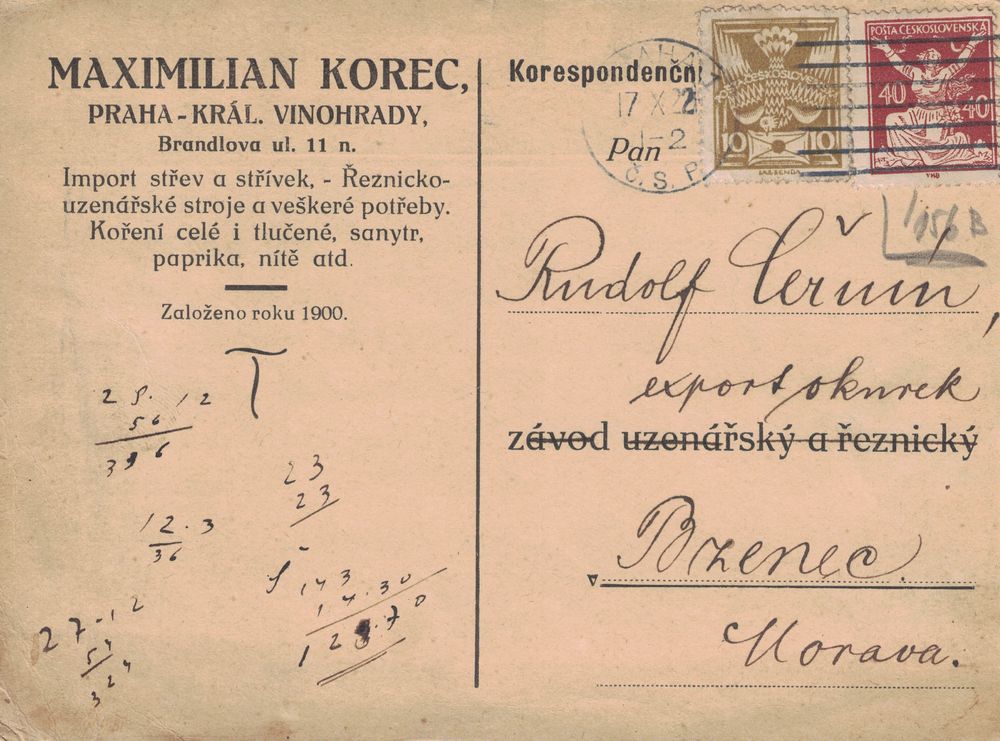 MAXIMILIAN KOREC,
PRAHA - KRÁL. VINOHRADY,
Brandlova ul. 11 n.
Import střev a střívek, - Řeznicko-
uzenářské stroje a veškeré potřeby.
Koření celé i tlučené, sanytr,
paprika, nítě atd.
Založeno roku 1900.
12
56
12.3
36
23
23
143
14.30
27-12
54
324
Korespondenčn
PRAHA
17 X 22
1-2
Č. S. P.
POŠTA ČESKOSLOVENSKÁ
10 10
40 40
156 B
Pan
Rudolf Čeřuín,
export okurek
závod uzenářský a řeznický
Bzenec.
Morava.